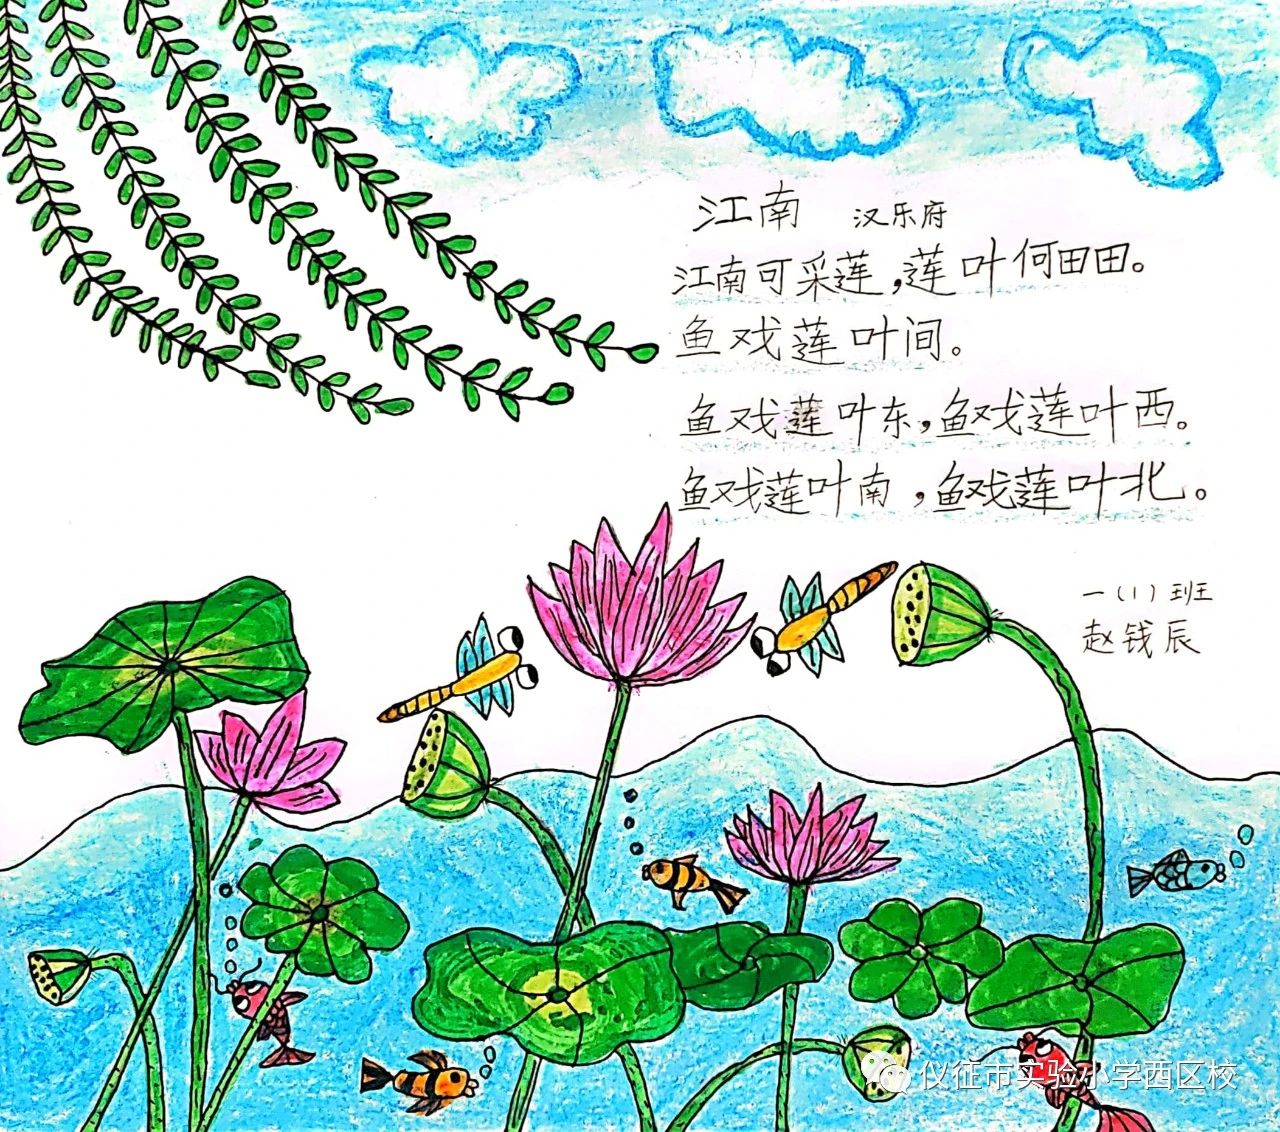 江南 汉乐府
江南可采莲,莲叶何田田。
鱼戏莲叶间。
鱼戏莲叶东,鱼戏莲叶西。
鱼戏莲叶南,鱼戏莲叶北。
一(1)班
赵钱辰
仪征市实验小学西区校